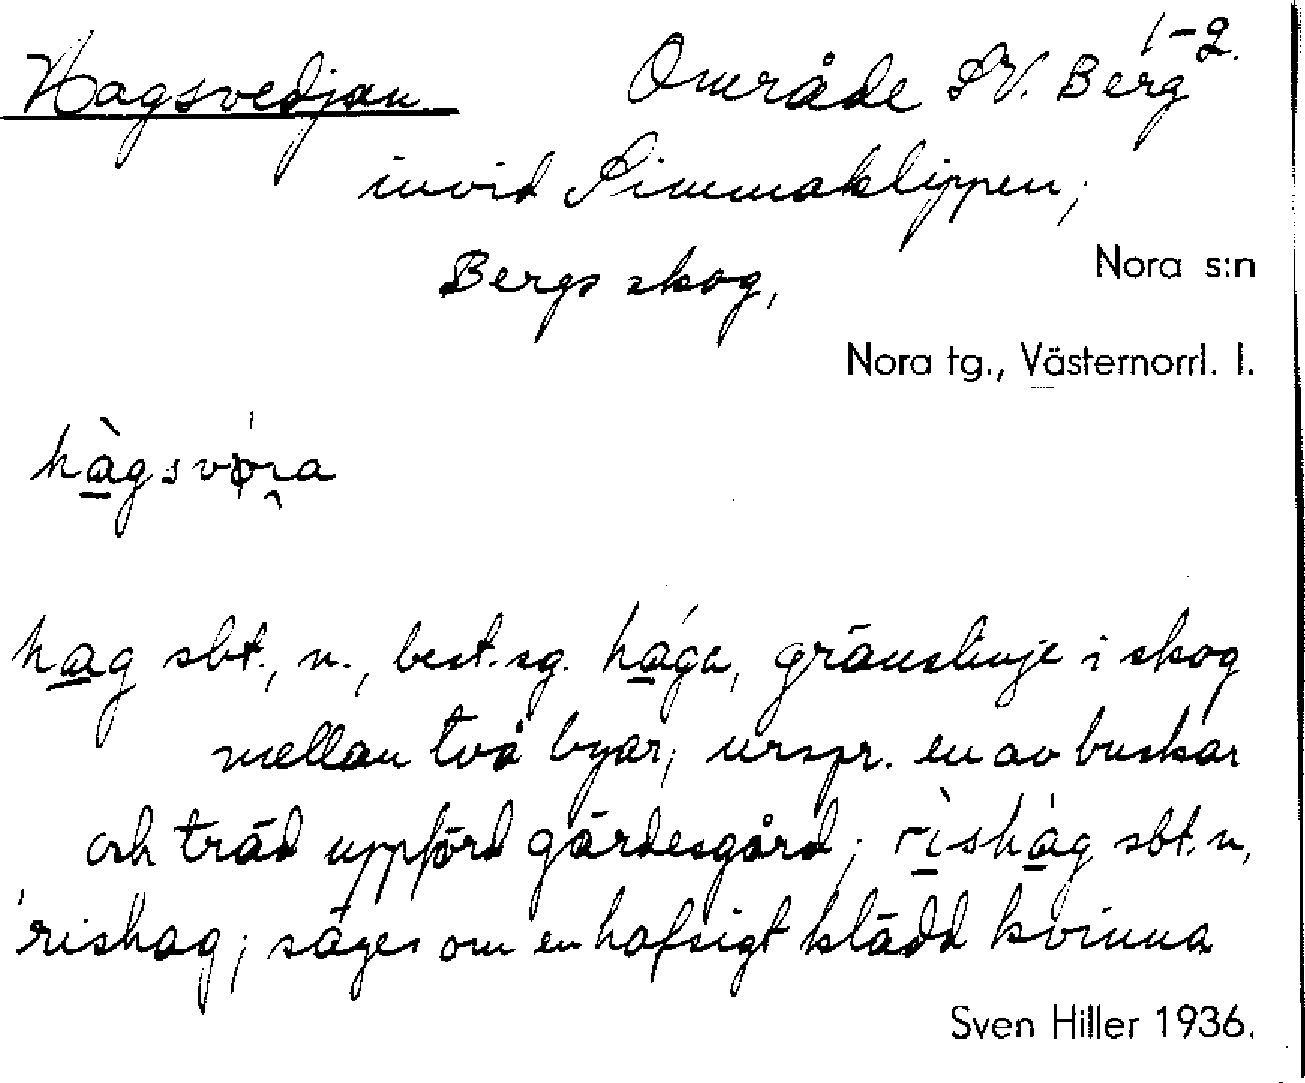 Hagsvedjan Område SV. Berg 1-2.
invid Simmaklippen,
Bergs skog,
Nora s:n
Nora tg., Västernorrl. l.
hag sbt., n., best. sg. hága, gränslinje i skog
mellan två byar; urspr. en av buskar
och träd uppförd gärdesgård; rìshág sbt. n,
'rishag; säges om en hafsigt klädd kvinna
Sven Hiller 1936.